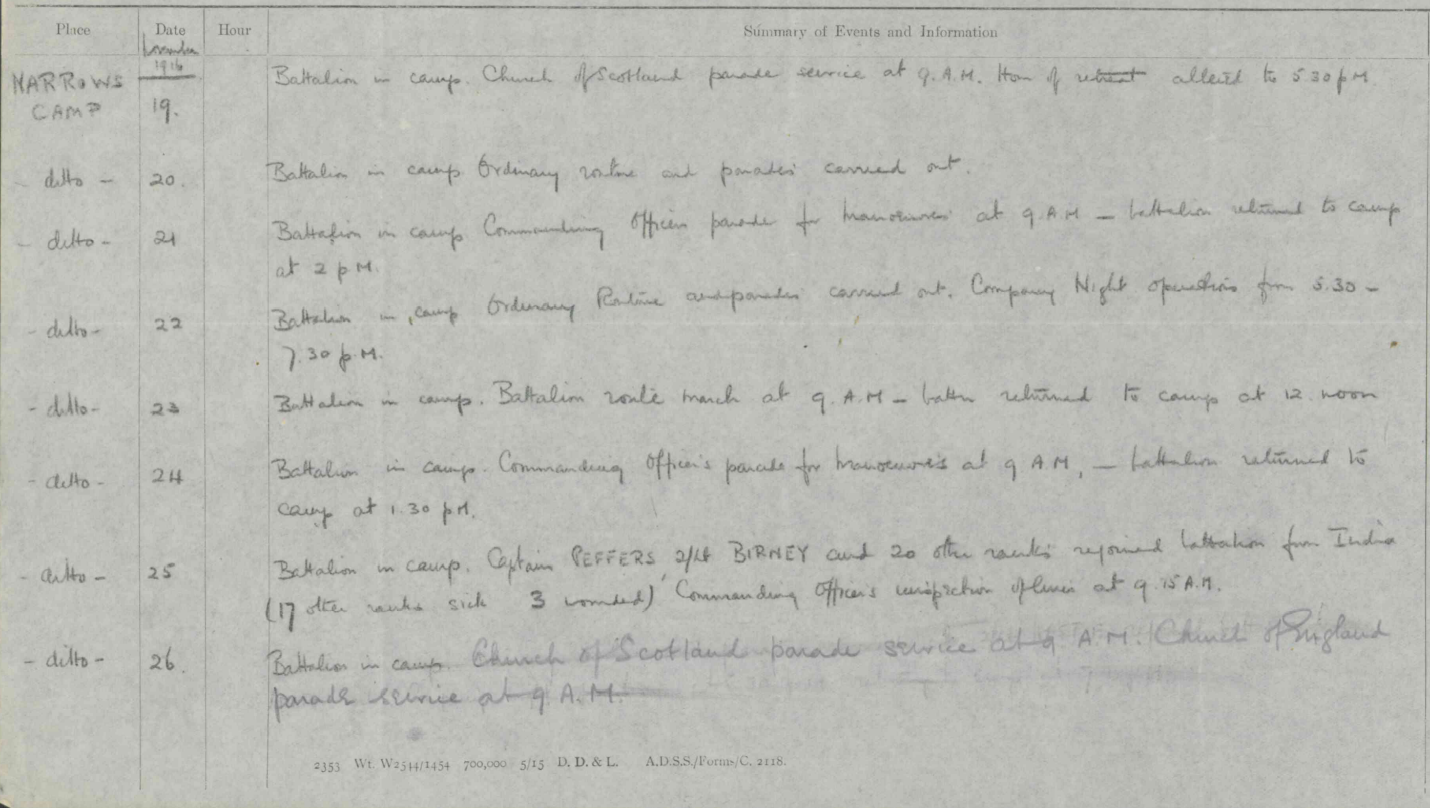 Place Date Hour Summary of Events and Information
November
1916
NARROWS CAMP 19. Battalion in camp. Church of Scotland parade service at 9. A.M. Hour of retreat altered to 5 30 p M.
- ditto - 20. Battalion in camp Ordinary routine and parades carried out.
- ditto - 21 Battalion in camp Commanding Officers parade for manoeuvres at 9. A.M - battalion returned to camp
at 2 p M.
- ditto - 22 Battalion in camp Ordinary Routine and parades carried out. Company Night operations from 5.30 -
7.30 p.M.
- ditto - 23 Battalion in camp. Battalion route march at 9. A.M - battn returned to camp at 12 noon
- ditto - 24 Battalion in camp. Commanding Officer's parade for manoeuvres at 9 A M, - battalion returned to
camp at 1.30 p M.
- ditto - 25 Battalion in camp. Captain PEFFERS, 2/Lt BIRNEY and 20 other ranks rejoined battalion from India
(17 other ranks sick 3 wounded) Commanding Officer's inspection of lines at 9.15 A.M.
- ditto - 26. Battalion in camp. Church of Scotland parade service at 9 A.M. Church of England
parade service at 9 A.M.
2353 Wt. W2544/1454 700,000 5/15 D. D. & L. A.D.S.S./Forms/C. 2118.